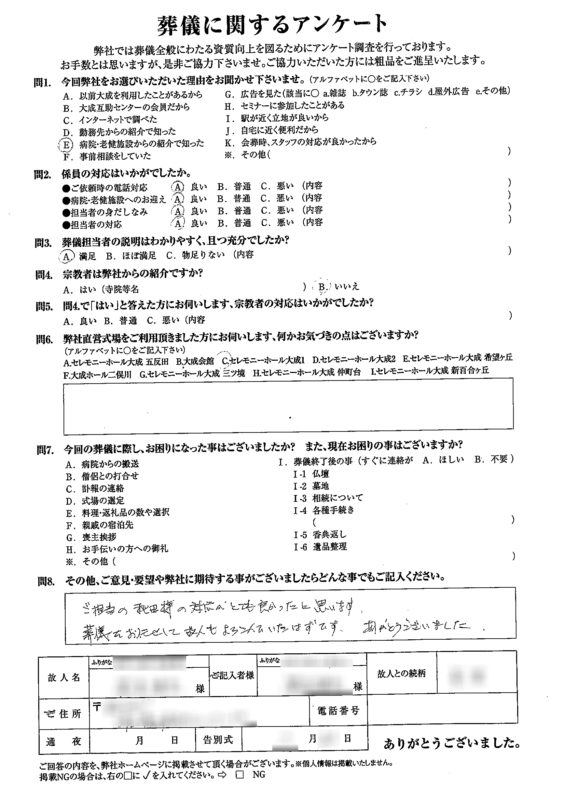 葬儀に関するアンケート
弊社では葬儀全般にわたる資質向上を図るためにアンケート調査を行っております。
お手数とは思いますが、是非ご協力下さいませ。ご協力いただいた方には粗品をご進呈いたします。
問1. 今回弊社をお選びいただいた理由をお聞かせ下さいませ。(アルファベットに〇をご記入下さい)
A. 以前大成を利用したことがあるから
B. 大成互助センターの会員だから
C. インターネットで調べた
D. 勤務先からの紹介で知った
E. 病院・老健施設からの紹介で知った
F. 事前相談をしていた
G. 広告を見た(該当に〇 a.雑誌 b.タウン誌 c.チラシ d.屋外広告 e.その他)
H. セミナーに参加したことがある
I. 駅が近く立地が良いから
J. 自宅に近く便利だから
K. 会葬時、スタッフの対応が良かったから
※. その他( )
問2. 係員の対応はいかがでしたか。
●ご依頼時の電話対応 A. 良い B. 普通 C. 悪い (内容 )
●病院・老健施設へのお迎え A. 良い B. 普通 C. 悪い (内容 )
●担当者の身だしなみ A. 良い B. 普通 C. 悪い (内容 )
●担当者の対応 A. 良い B. 普通 C. 悪い (内容 )
問3. 葬儀担当者の説明はわかりやすく、且つ充分でしたか?
A. 満足 B. ほぼ満足 C. 物足りない (内容 )
問4. 宗教者は弊社からの紹介ですか?
A. はい (寺院等名 ) B. いいえ
問5. 問4.で「はい」と答えた方にお伺いします、宗教者の対応はいかがでしたか?
A. 良い B. 普通 C. 悪い (内容 )
問6. 弊社直営式場をご利用頂きました方にお伺いします、何かお気づきの点はございますか?
(アルファベットに〇をご記入下さい)
A.セレモニーホール大成 五反田 B.大成会館 C.セレモニーホール大成1 D.セレモニーホール大成2 E.セレモニーホール大成 希望ヶ丘
F.大成ホール二俣川 G.セレモニーホール大成 三ツ境 H.セレモニーホール大成 仲町台 I.セレモニーホール大成 新百合ヶ丘
問7. 今回の葬儀に際し、お困りになった事はございましたか? また、現在お困りの事はございますか?
A. 病院からの搬送
B. 僧侶との打合せ
C. 訃報の連絡
D. 式場の選定
E. 料理・返礼品の数や選択
F. 親戚の宿泊先
G. 喪主挨拶
H. お手伝いの方への御礼
※. その他 ( )
I. 葬儀終了後の事 (すぐに連絡が A. ほしい B. 不要 )
I-1 仏壇
I-2 墓地
I-3 相続について
I-4 各種手続き
( )
I-5 香典返し
I-6 遺品整理
問8. その他、ご意見・要望や弊社に期待する事がございましたらどんな事でもご記入ください。
ご担当の秋田様の対応がとても良かったと思います。
葬儀をお任せして故人もよろこんでいたはずです。 ありがとうございました。
故人名 ふりがな 様 ご記入者様 ふりがな 様 故人との続柄
ご住所 〒 電話番号
通夜 月 日 告別式 月 日
ありがとうございました。
ご回答の内容を、弊社ホームページに掲載させて頂く場合がございます。※個人情報は掲載いたしません。
掲載NGの場合は、右の□に✓を入れてください。⇨ □ NG